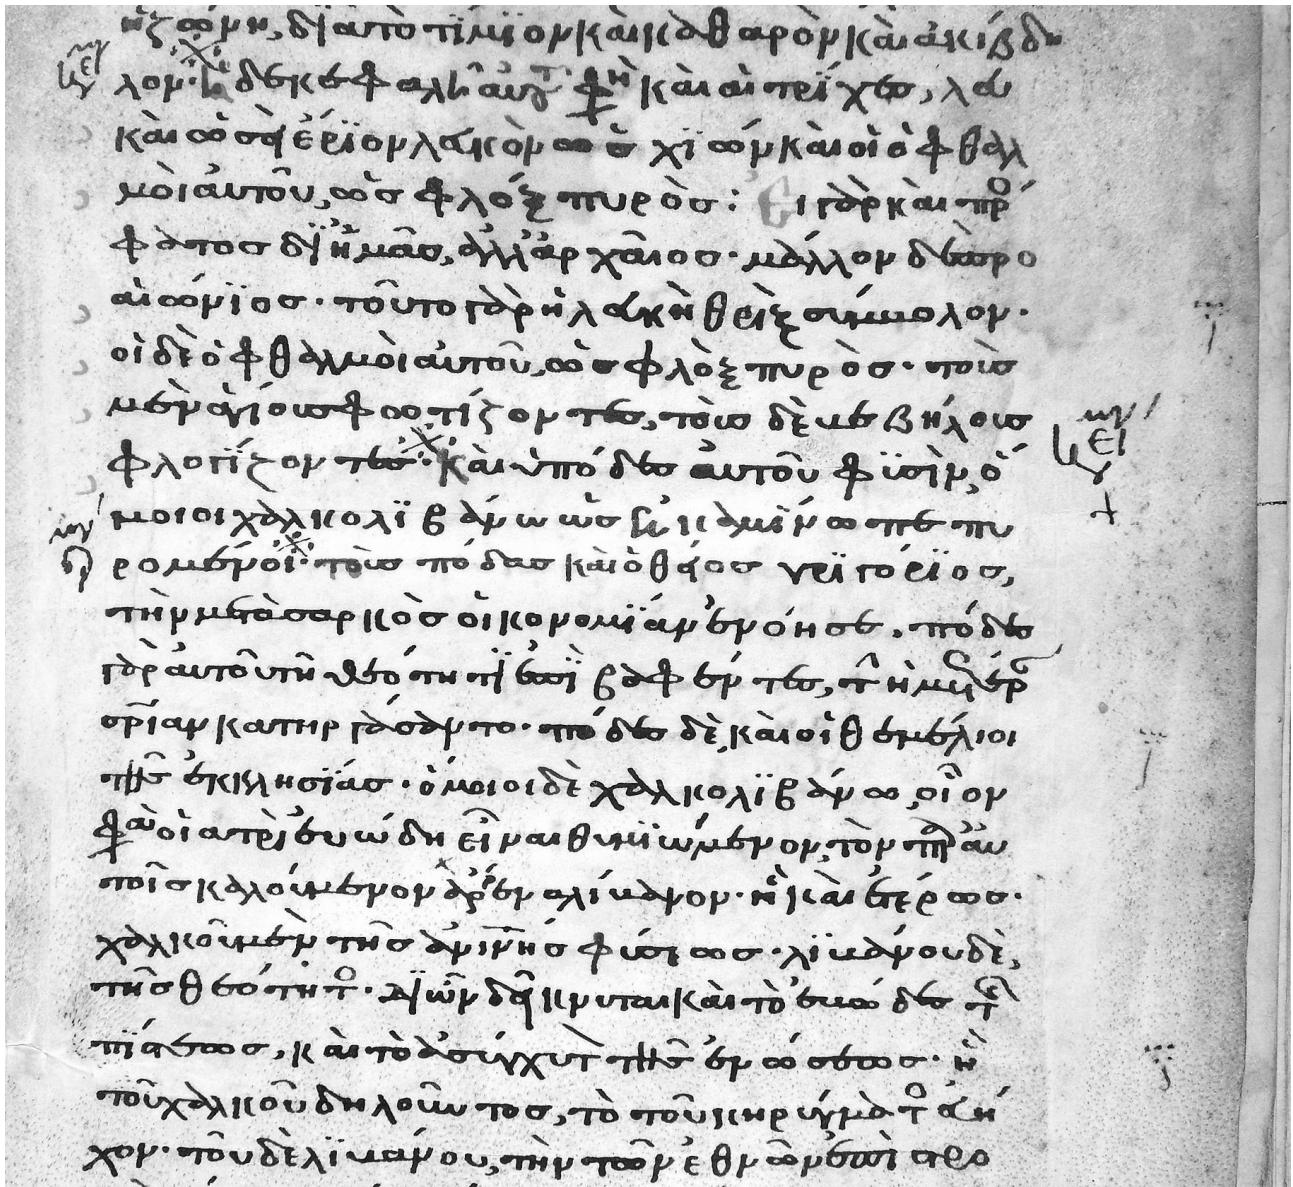 ἡ ζώνη, διὰ τὸ τίμιον καὶ καθαρὸν καὶ ἀκίβδη
λον· ἡ δὲ κεφαλὴ αὐτοῦ φη καὶ αἱ τρίχες, λευ
καὶ ὡσεὶ ἔριον λευκὸν ὡς χιὼν καὶ οἱ ὀφθαλ
μοὶ αὐτοῦ, ὡς φλὸξ πυρὸς: Εἰ γὰρ καὶ πρό
φατος δι' ἡμᾶς, ἀλλ' ἀρχαῖος· μᾶλλον δὲ προ
αιώνιος· τοῦτο γὰρ ἡ λευκὴ θρὶξ σύμβολον·
οἱ δὲ ὀφθαλμοὶ αὐτοῦ, ὡς φλὸξ πυρὸς· τοῖς
μὲν ἁγίοις φωτίζοντες, τοῖς δὲ βεβήλοις
φλογίζοντες· καὶ οἱ πόδες αὐτοῦ φησὶν, ὅ
μοιοι χαλκολιβάνω ὡς ἐν καμίνω πεπυ
ρομένοι· τοὺς πόδας καὶ ὁ θεῖος γρηγόριος,
τὴν μετὰ σαρκὸς οἰκονομίαν ἐνόησε. πόδες
γὰρ αὐτοῦ τῆ θεότητι ἐπιβαφέντες, τ ἡμ
σρίαν κατηργάσαντο· πόδες δὲ, καὶ οἱ θεμέλιοι
τῆς ἐκκλησίας· ὅμοιοι δὲ χαλκολιβάνω, οἷον
φα οἱ ἰατροὶ εὐώδη εἶναι θυμιώμενον, τὸν παρ' αὐ
τοῖς καλούμενον ἄρρενα λίβανον· ἢ καὶ ἑτέρως·
χαλκοῦ μὲν τῆς ἀνίνης φύσεως· λιβάνου δὲ,
τῆς θεότητος· δι' ὧν δείκνυται καὶ τὸ εὐῶδες τῆς
πίστεως, καὶ τὸ ἀσύγχυτ τῆς ἑνώσεως· ἢ
τοῦ χαλκοῦ δηλοῦντος, τὸ τοῦ κηρύγματος εὔη
χον· τοῦ δὲ λιβάνου, τὴν τῶν ἐθνῶν ἐπιστρο